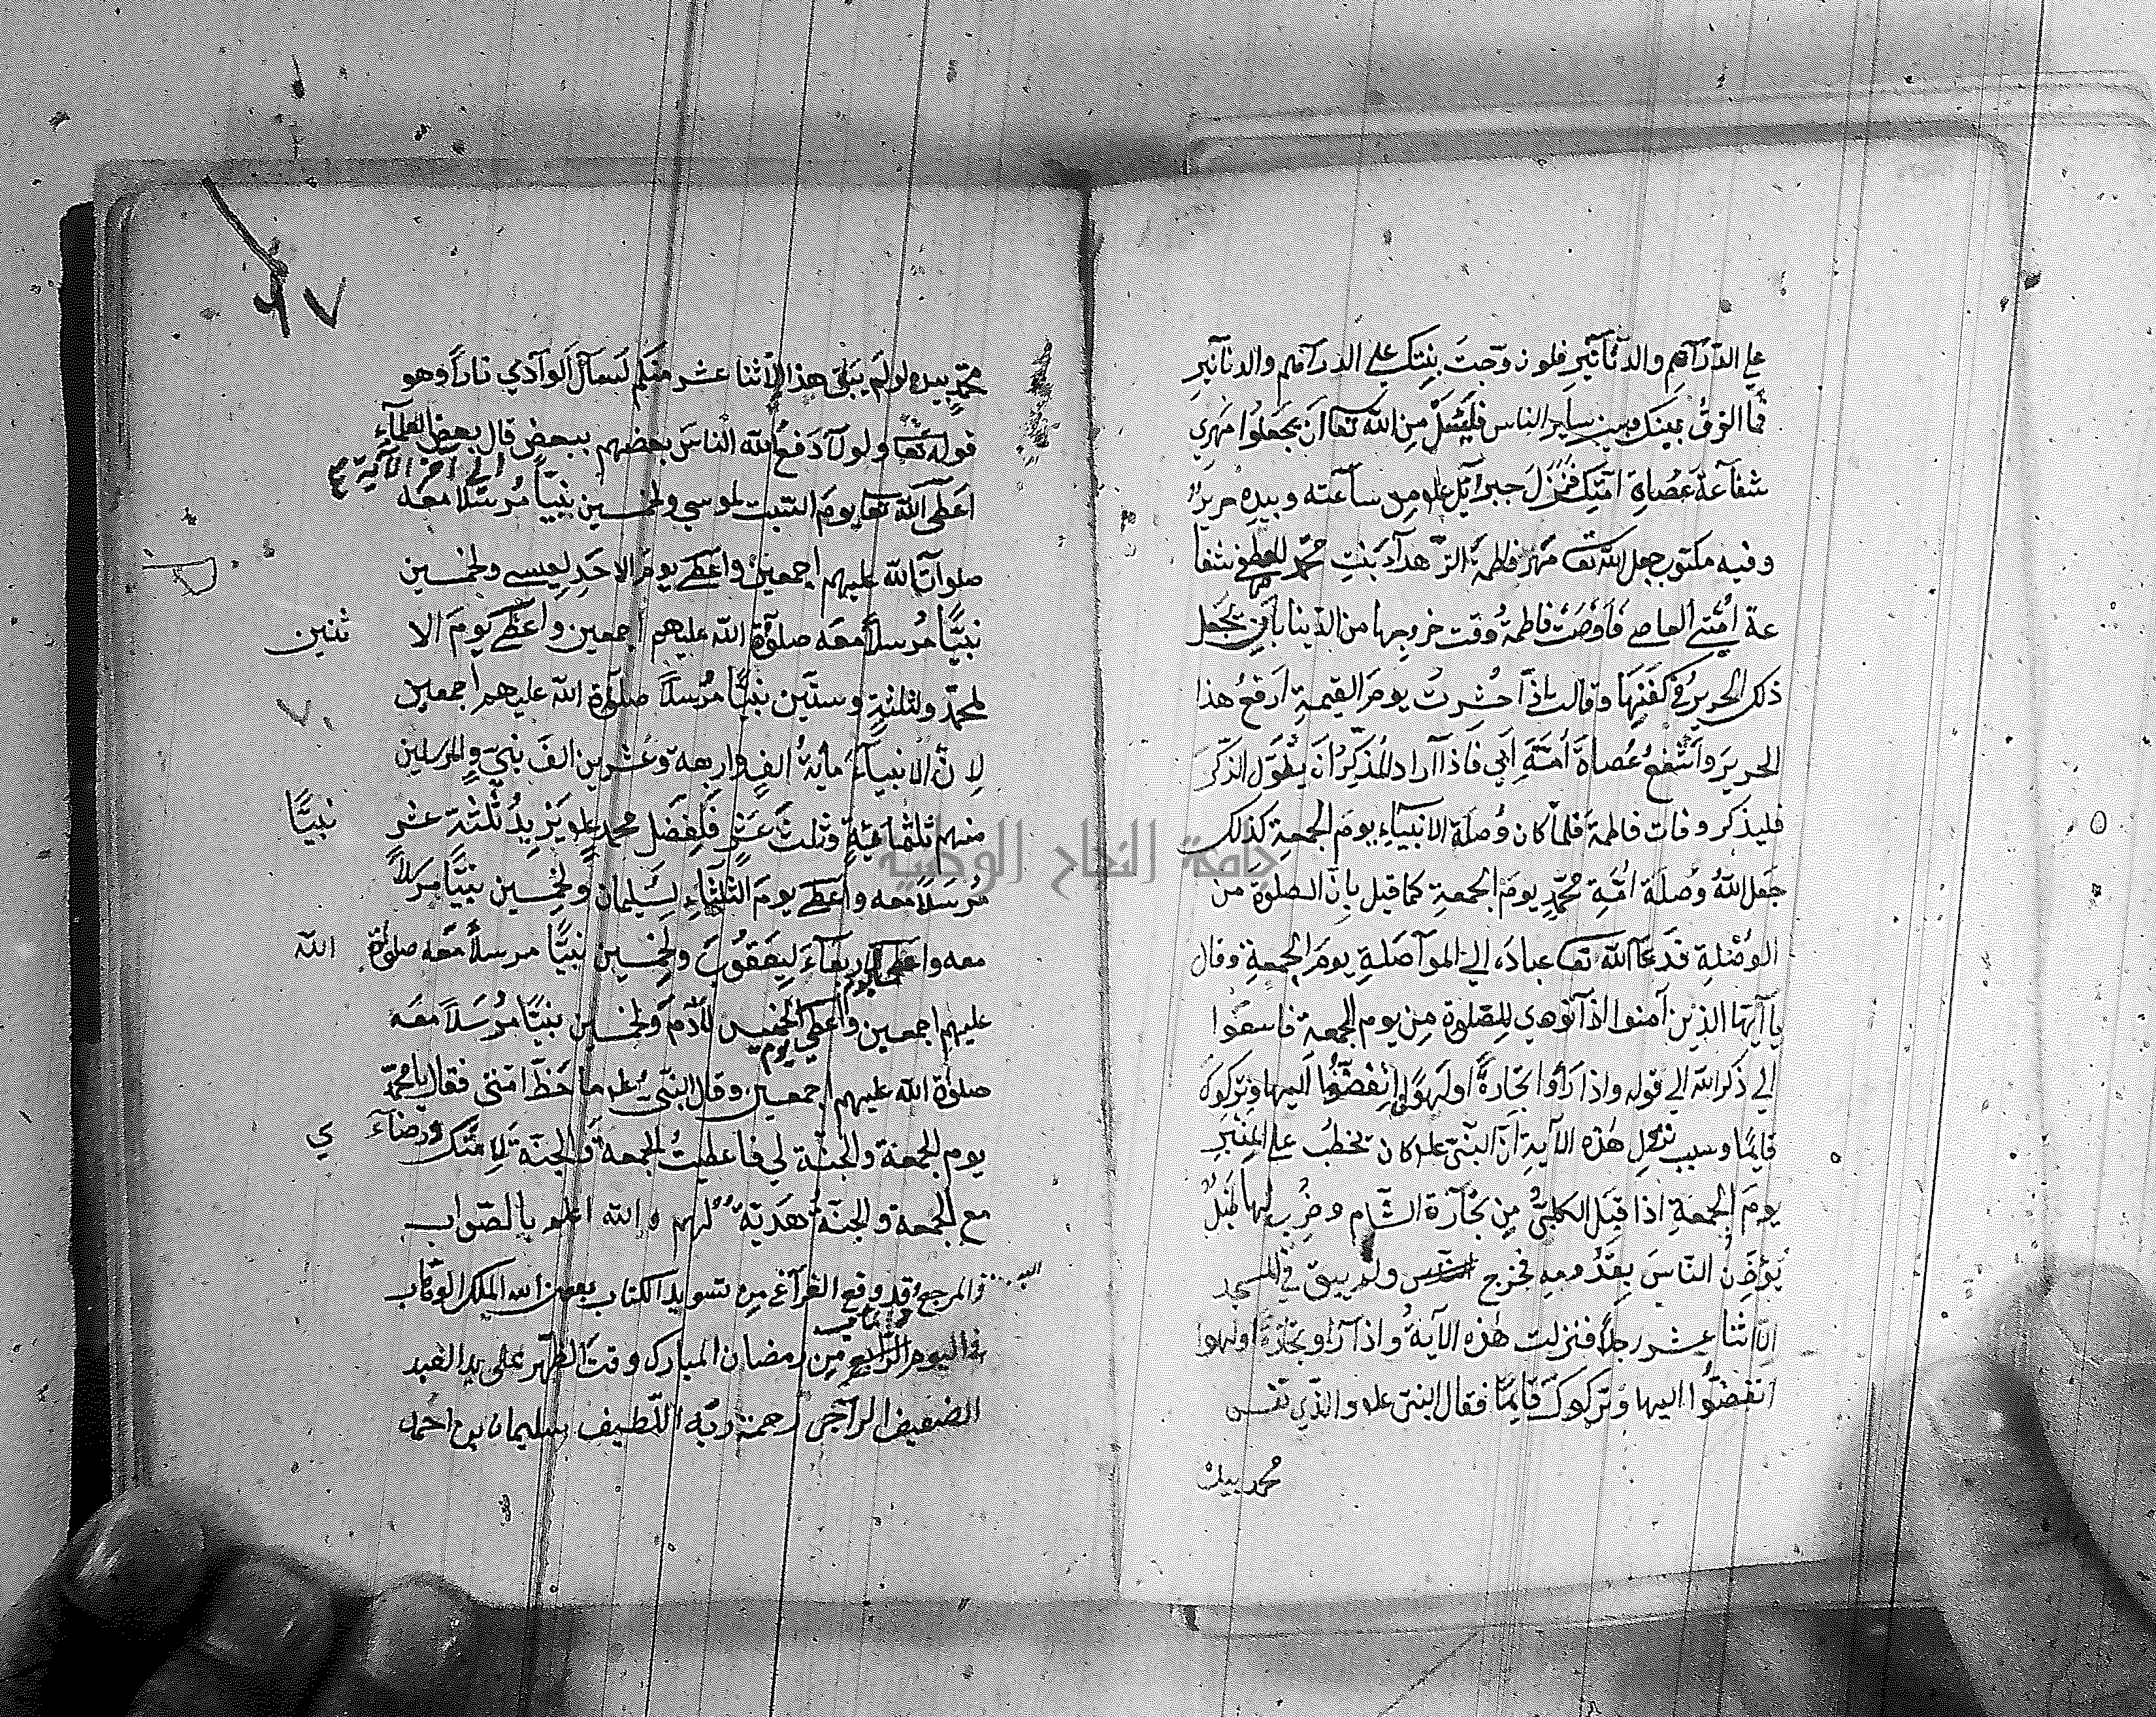 علي الدّرآهم والدّنآنير فلو زوّجت بنتك علي الدرآهم والدنآنير
فما الفرقُ بينك وبين سآير الناس فليسئل من الله تعا ان يجعلوا مهري
شفاعة عصاة امّتك فنزل جبرآئيل علم من ساعته وبيده حريرٌ
وفيه مكتوب جعل الله تعا مهر فاطمة الزّهدآء بنت محمّد شفا
عة أُمّتي العاصي فاوصت فاطمةُ وقت خروجها من الدّنيا بان يجعل
ذلك الحريرُ في كفنها وقالت اذآ حُشرتُ يومَ القيمة ارفعُ هذا
الحرير واشفعُ عُصاةَ أمّة أبي فاذآ آراد المُذكّرُ ان يقول الذّكر
فليذكر وفات فاطمة فلمّا كان وُصلة الانبياءِ يومَ الجمعة كذلك
جعل اللهُ وُصلة امّة محمّدٍ يومَ الجمعة كما قيل بانّ الصلوة من
الوُصْلةِ فدعآ الله تعا عبادَه الي الموآصلةِ يومَ الجمعةِ وقال
يآ ايّها الذين آمنوا اذآ نودي للصّلوة من يوم الجمعة فاسعَوا
الي ذكر الله الي قوله واذا رَأوا تجارةً اولهوًا انفضّوا اليها وتركوك
قايمًا وسبب نزول هٰذه الآية انّ النّبيّ علم كان يخطبُ علي المنبر
يومَ الجمعة اذا قبل الكلبيُّ من تجآرة الشّام وضُرب لها طبلٌ
يُؤذِنُ النّاسَ بقدُومِهِ فخرج ولم يبق في المسجد
الّا اثنا عشر رجلًا فنزلت هٰذه الآيةُ واذآ رأو تجارة اولهوا
انفضّوا اليها وتركوك قايمًا فقال النبي علم والّذي نفس
محمد بيده
محمّد بيده لو لم يبق هذا الاثنا عشر منكم لسآل الوآدي نارًا وهو
قوله تعا ولولآ دفعُ الله الناسَ بعضهم ببعض قال بعضُ العلمآءِ
الي آخر الآية
اعطَي الله تعا يومَ السّبت لموسي ولخمسين نبيّاً مُرسلًا معَه
صلوآتُ الله عليهم اجمعين واعطي يومَ الاحد لعيسي ولخمسين
نبيًّا مُرسلًا معَه صلوةُ الله عليهم اجمعين واعطي يومَ الا ثنين
لمحمّدٍ ولثلثةٍ وستّين نبيًّا مُرسلًا صلوةُ الله عليهم اجمعين
لانّ الانبيآءَ مأيةُ الفٍ واربعة وعشرين الفَ نبيّ والمرسلين
منهم ثلثمايةٍ وثلثَ عشرَ فلفضل محمدٍ علم يزيدُ ثلثة عشر نبيًّا
مُرسلًا معه واعطي يومَ الثلثآءِ لسليمان ولخمسين نبيًّا مرسلًا
معه واعطي يوم الاربعآءَ ليعقُوبَ ولخمسين نبيًّا مرسلًا معَه صلوةُ الله
عليهم اجمعين واعطي يوم الخميس لآدَم ولخمسين نبيًّا مُرسَلًا معَه
صلوةُ الله عليهم اجمعين وقال النّبيُّ علم ما حَظُّ امّتي فقال يا محمّد
يوم الجمعة والجنّة لي فاعطيتُ الجمعةَ والجنّةَ لامّتك ورضآء ي
مع الجمعة والجنّة هديّةٌ لهم والله اعلم بالصّواب
والمرجع قد وقع الفرآغ من تسويد الكتاب بعون الله الملك الوهّاب
في اليوم الرّابع من رمضان المبارك وقت الظّهر على يد العبد
الضعيف الرآجي رحمة ربّه اللّطيف سليمان بن احمد
٦٧
جامعة النجاح الوطنية